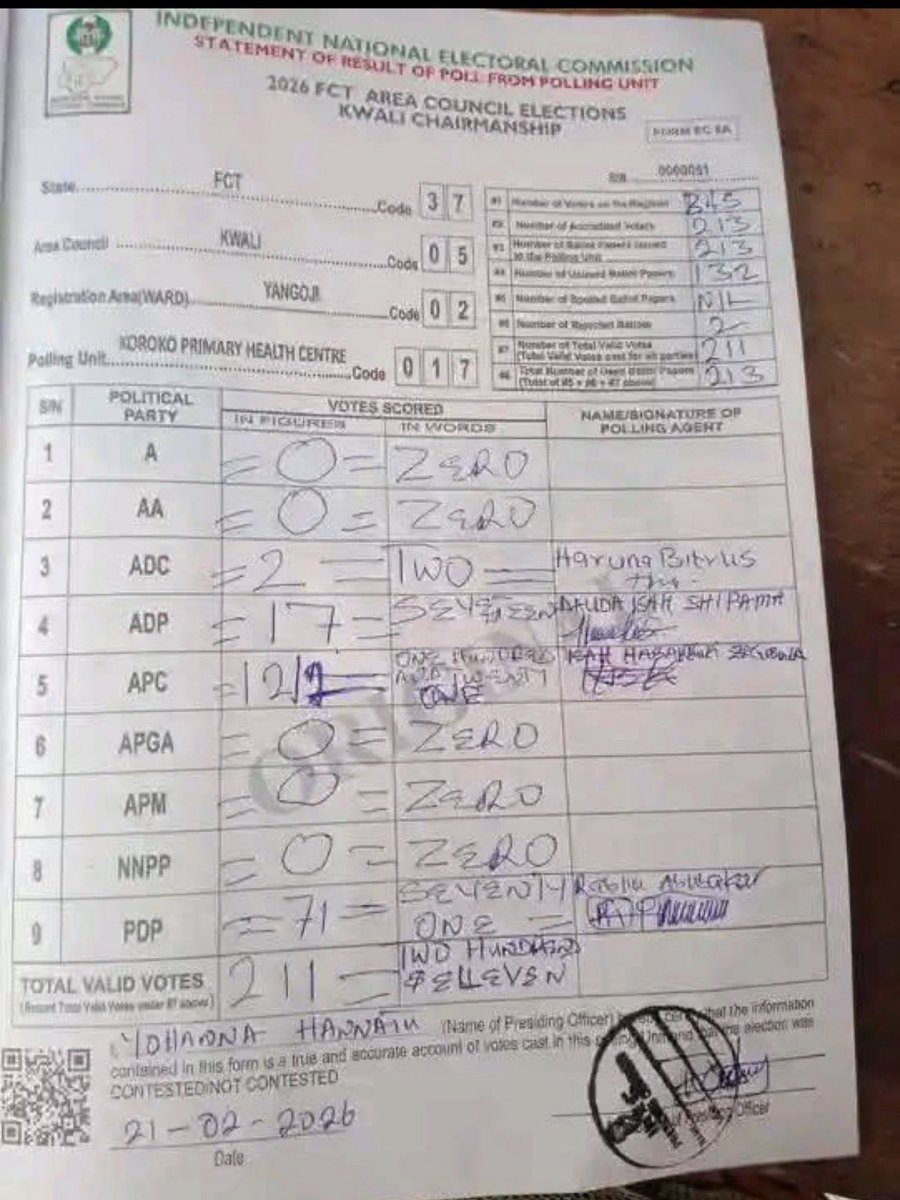 INDEPENDENT NATIONAL ELECTORAL COMMISSION
STATEMENT OF RESULT OF POLL FROM POLLING UNIT
2026 FCT AREA COUNCIL ELECTIONS
KWALI CHAIRMANSHIP
FORM EC 8A
S/N 0000051
State FCT Code 3 7
Area Council KWALI Code 0 5
Registration Area(WARD) YANGOJI Code 0 2
Polling Unit KOROKO PRIMARY HEALTH CENTRE Code 0 1 7
#1 Number of Voters on the Register 345
#2 Number of Accredited Voters 213
#3 Number of Ballot Papers Issued to the Polling Unit 213
#4 Number of Unused Ballot Papers 132
#5 Number of Spoiled Ballot Papers NIL
#6 Number of Rejected Ballots 2
#7 Number of Total Valid Votes (Total Valid Votes cast for all parties) 211
#8 Total Number of Used Ballot Papers (Total of #5 + #6 + #7 above) 213
S/N POLITICAL PARTY VOTES SCORED IN FIGURES IN WORDS NAME/SIGNATURE OF POLLING AGENT
1 A =0= ZERO
2 AA =0= ZERO
3 ADC =2= TWO Haruna Bitrus
4 ADP =17= SEVETEEN DAUDA ISAH SHIPAMA
5 APC =121= ONE HUNDRED AND TWENTY ONE ISAH
6 APGA =0= ZERO
7 APM =0= ZERO
8 NNPP =0= ZERO
9 PDP =71= SEVENTY ONE = Rabiu Abubakar
TOTAL VALID VOTES 211 TWO HUNDRED
(Record Total Valid Votes under #7 above)
YOHANNA (Name of Presiding Officer) certify that the information
contained in this form is a true and accurate account of votes cast in this polling Unit and that the election was
CONTESTED/NOT CONTESTED
21-02-2026
Date
Officer
ORIGINAL